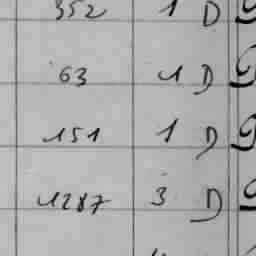 352 1 D
63 1 D
151 1 D
1287 3 D